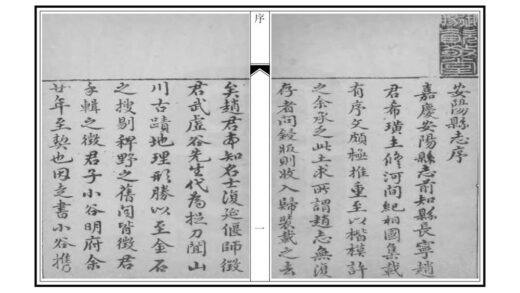 安陽縣志序
嘉慶安陽縣志前知縣長寧趙
君希璜主修河間紀相國集載
有序文頗極推重至以楷模許
之余承乏此土求所謂趙志無復
存者問鋟版則收入歸裝載之去
序
一
矣趙君亦知名士復延偃師徵
君武虛谷先生代為捉刀聞山
川古蹟地理形勝以至金石
之搜剔稗野之舊聞皆徵君
手輯之徵君子小谷明府余
廿年至契也因走書小谷攜